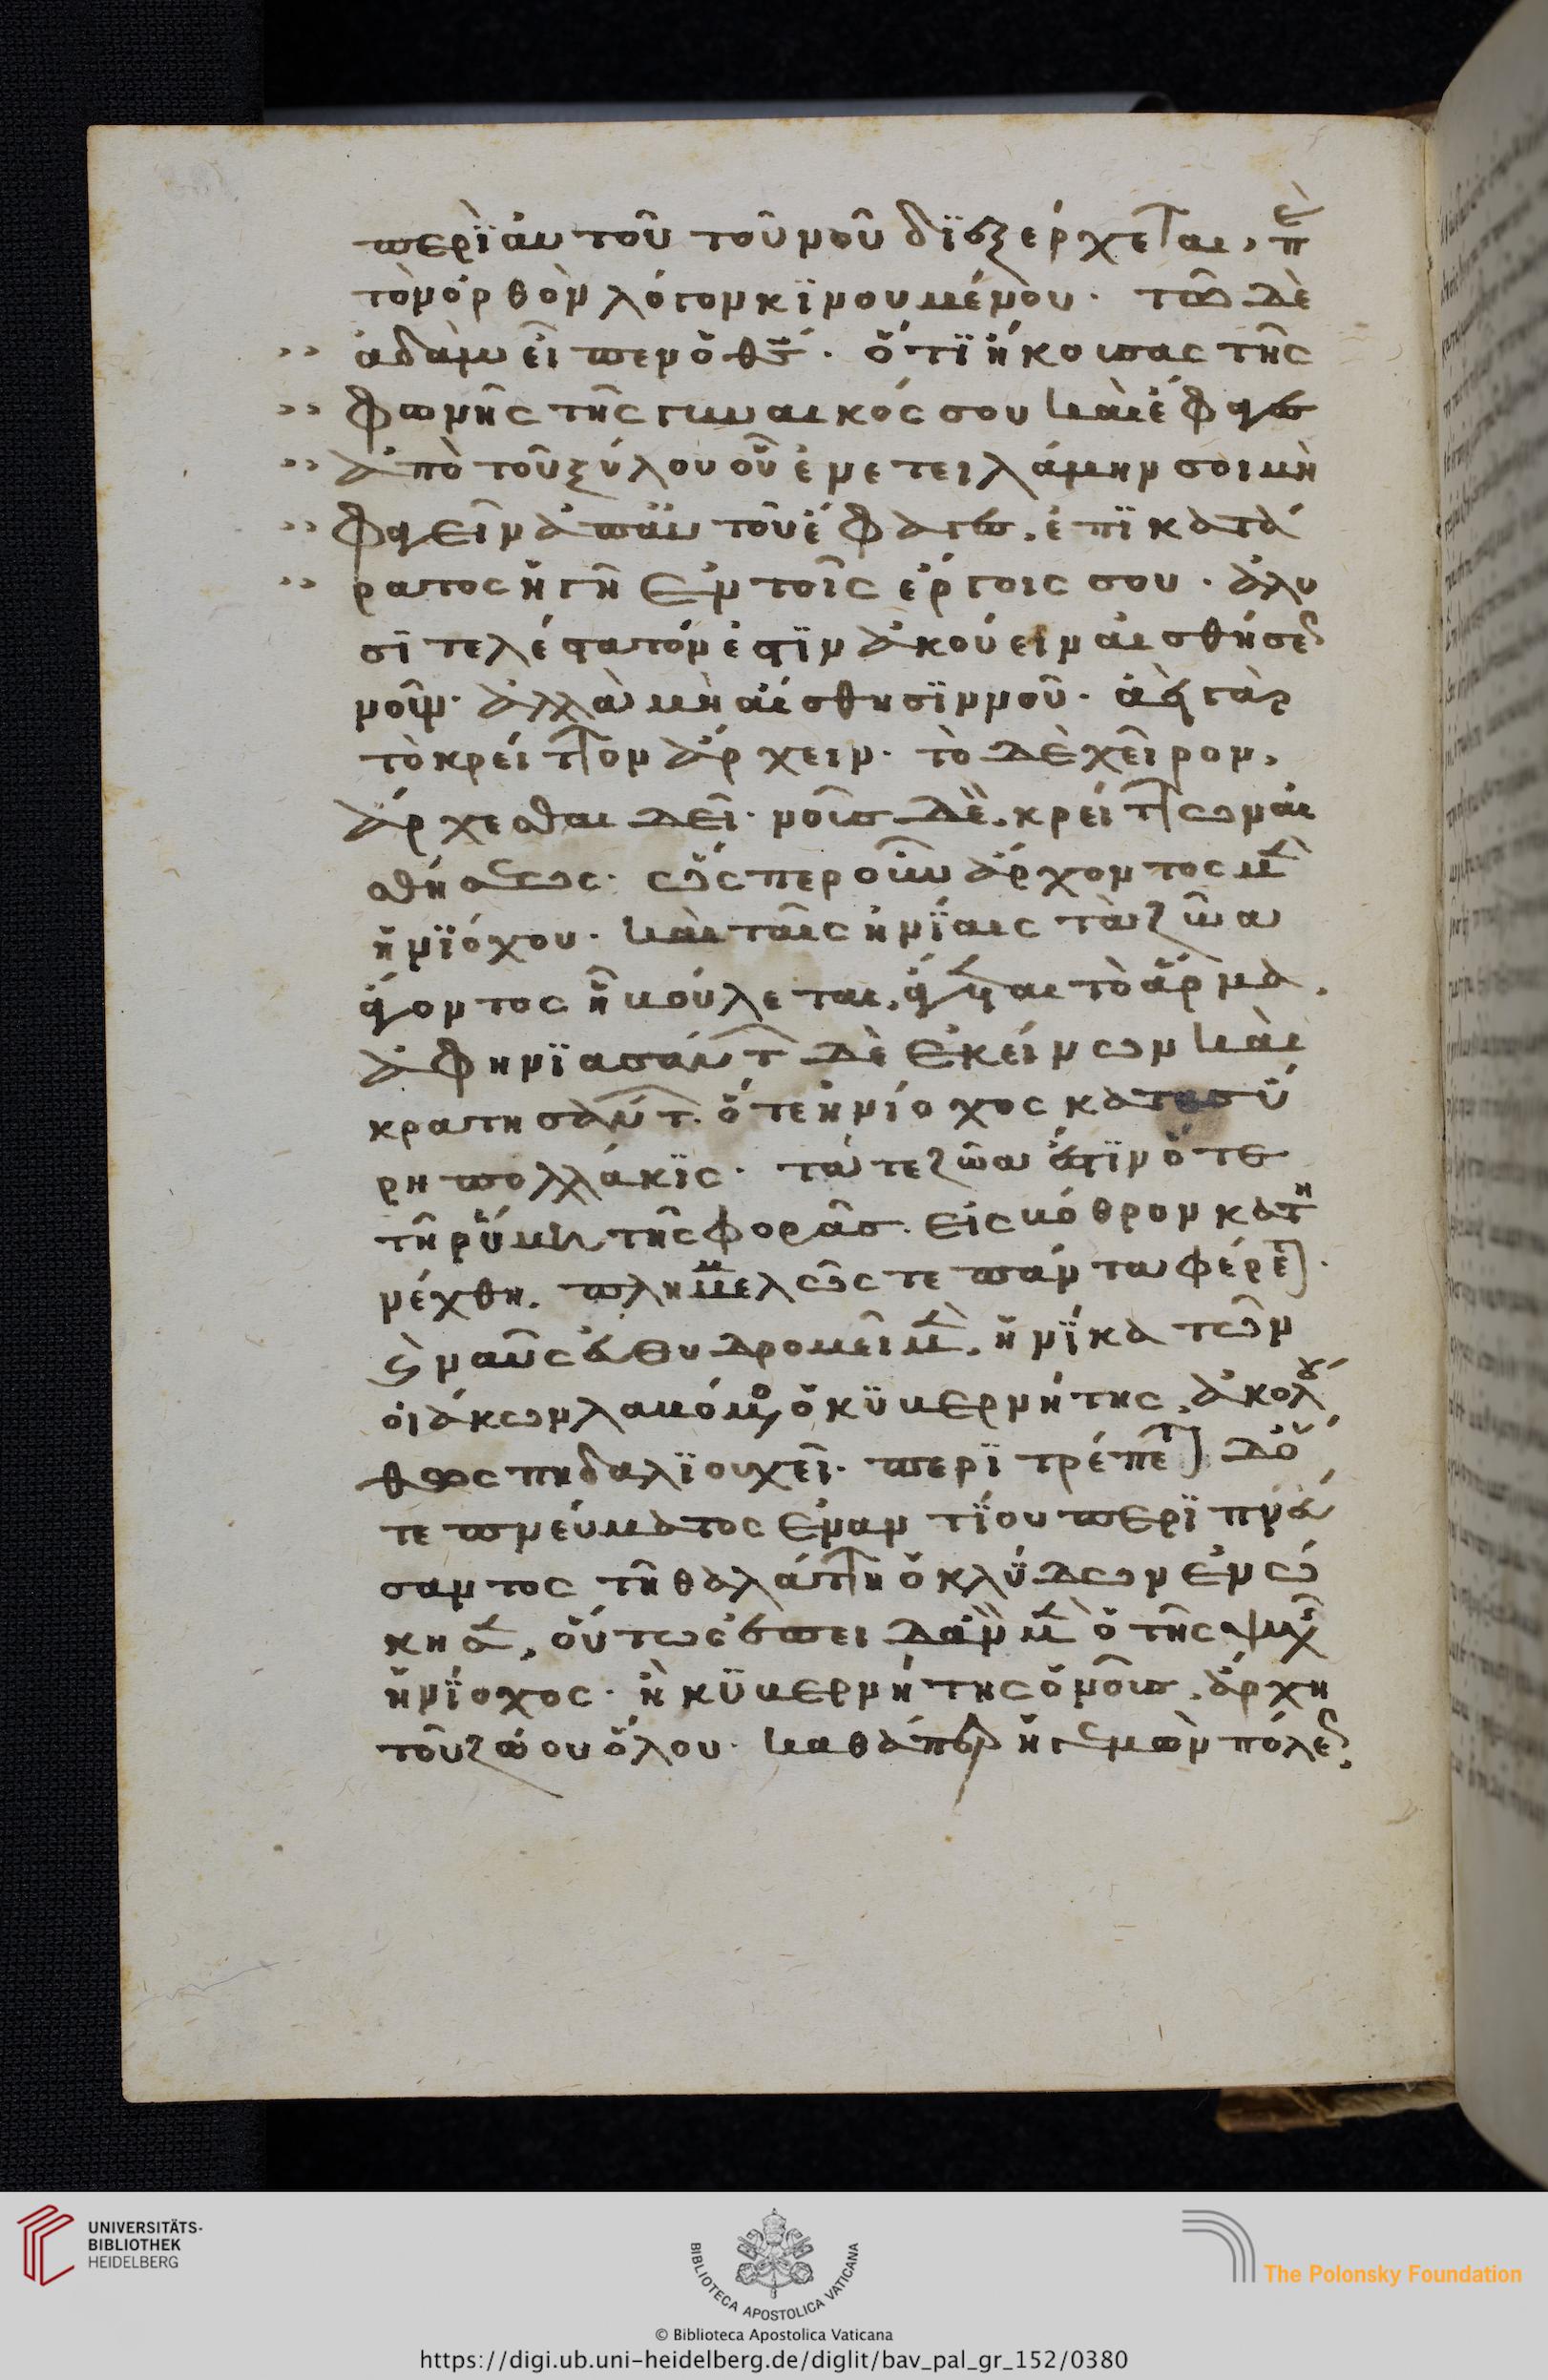 περὶ αὐτοῦ τοῦ νοῦ διεξέρχεται, ἐπὶ
τὸν ὀρθὸν λόγον κινουμένου· τῶ δὲ
›› ἀδὰμ εἶπεν ὁ θς· ὅτι ἤκουσας τῆς
›› φωνῆς τῆς γυναικός σου καὶ ἔφαγες
›› ἀπὸ τοῦ ξύλου οὗ ἐνετειλάμην σοι μὴ
›› φαγεῖν ἀπ αὐτοῦ ἔφαγες, ἐπικατά
›› ρατος ἡ γῆ ἐν τοῖς ἔργοις σου· ἀλυ
σιτελέστατόν ἐστιν ἀκούειν αἰσθήσεως
νοῦν· ἀλλὰ μὴ αἴσθησιν νοῦ· ἀεὶ γὰρ
τὸ κρείττον ἄρχειν· τὸ δὲ χεῖρον,
ἄρχεσθαι δεῖ· νοῦς δὲ, κρείττων αἰ
σθήσεως· ὥσπερ οὖν ἄρχοντος μὲν
ἡνιόχου· καὶ ταῖς ἡνίαις τὰ ζῶα
ἄγοντος ἧ βούλεται, ἄγεται τὸ ἅρμα,
ἀφηνιασάντων δὲ ἐκείνων καὶ
κρατησάντων· ὅ τε ἡνίοχος κατεσύ
ρη πολλάκις· τά τε ζῶα ἔστιν ὅτε
τῆ ῥύμη τῆς φορᾶς· εἰς βόθρον κατη
νέχθη, πλημμελῶς τε πάντα φέρεται·
καὶ ναῦς εὐθυδρομεῖ μὲν, ἡνίκα τῶν
οἰάκων λαβόμενος ὁ κυβερνήτης, ἀκολού
θως πηδαλιουχεῖ· περιτρέπεται δ ὅ
τε πνεύματος ἐναντίου περιπνεύ
σαντος τῆ θαλάττη ὁ κλύδων ἐνώ
κησεν, οὕτως ἐπειδὰν μὲν ὁ τῆς ψυχῆς
ἡνίοχος· ἢ κυβερνήτης ὁ νοῦς, ἄρχη
τοῦ ζώου ὅλου· καθάπερ ἡγεμὼν πόλεως,
UNIVERSITÄTS-
BIBLIOTHEK
HEIDELBERG
BIBLIOTECA APOSTOLICA VATICANA
The Polonsky Foundation
© Biblioteca Apostolica Vaticana
https://digi.ub.uni-heidelberg.de/diglit/bav_pal_gr_152/0380